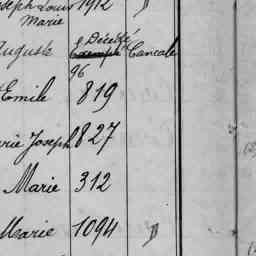 oseph Louis 1912 "
Marie
Auguste Décédé Cancale
96
Emile 819
rie Joseph 827
Marie 312
Marie 1094 "